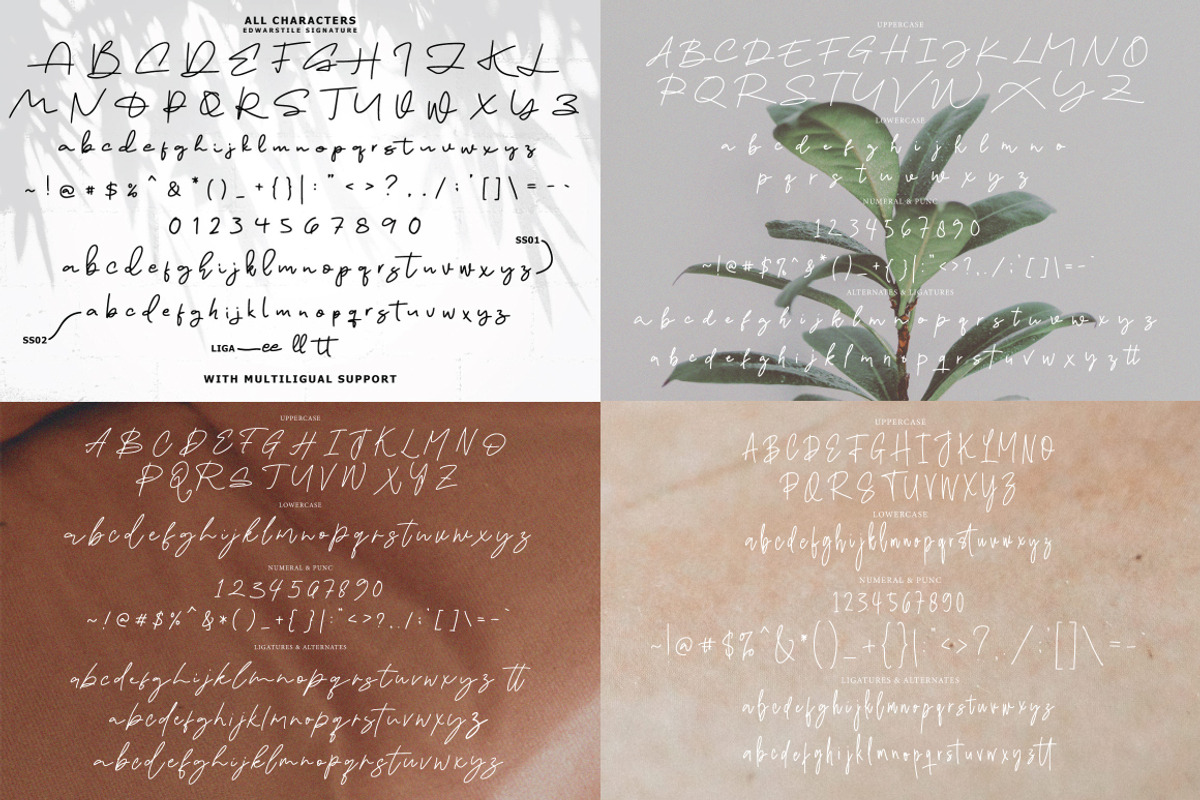 ALL CHARACTERS
EDWARSTILE SIGNATURE
A B C D E F G H I J K L
M N O P Q R S T U V W X Y Z
a b c d e f g h i j k l m n o p q r s t u v w x y z
~ ! @ # $ % ^ & * ( ) _ + { } | : " < > ? , . / ; ' [ ] \ = - `
0 1 2 3 4 5 6 7 8 9 0
SS01
a b c d e f g h i j k l m n o p q r s t u v w x y z
a b c d e f g h i j k l m n o p q r s t u v w x y z
SS02
LIGA ee ll tt
WITH MULTILIGUAL SUPPORT
UPPERCASE
A B C D E F G H I J K L M N O
P Q R S T U V W X Y Z
LOWERCASE
a b c d e f g h i j k l m n o
p q r s t u v w x y z
NUMERAL & PUNC
1 2 3 4 5 6 7 8 9 0
~ ! @ # $ % ^ & * ( ) _ + { } | : " < > ? , . / ; ' [ ] \ = - `
ALTERNATES & LIGATURES
a b c d e f g h i j k l m n o p q r s t u v w x y z
a b c d e f g h i j k l m n o p q r s t u v w x y z tt
UPPERCASE
A B C D E F G H I J K L M N O
P Q R S T U V W X Y Z
LOWERCASE
a b c d e f g h i j k l m n o p q r s t u v w x y z
NUMERAL & PUNC
1 2 3 4 5 6 7 8 9 0
~ ! @ # $ % ^ & * ( ) _ + { } | : " < > ? , . / ; ' [ ] \ = - `
LIGATURES & ALTERNATES
a b c d e f g h i j k l m n o p q r s t u v w x y z tt
a b c d e f g h i j k l m n o p q r s t u v w x y z
a b c d e f g h i j k l m n o p q r s t u v w x y z
UPPERCASE
A B C D E F G H I J K L M N O
P Q R S T U V W X Y Z
LOWERCASE
a b c d e f g h i j k l m n o p q r s t u v w x y z
NUMERAL & PUNC
1 2 3 4 5 6 7 8 9 0
~ ! @ # $ % ^ & * ( ) _ + { } | : " < > ? , . / ; ' [ ] \ = - `
LIGATURES & ALTERNATES
a b c d e f g h i j k l m n o p q r s t u v w x y z
a b c d e f g h i j k l m n o p q r s t u v w x y z tt